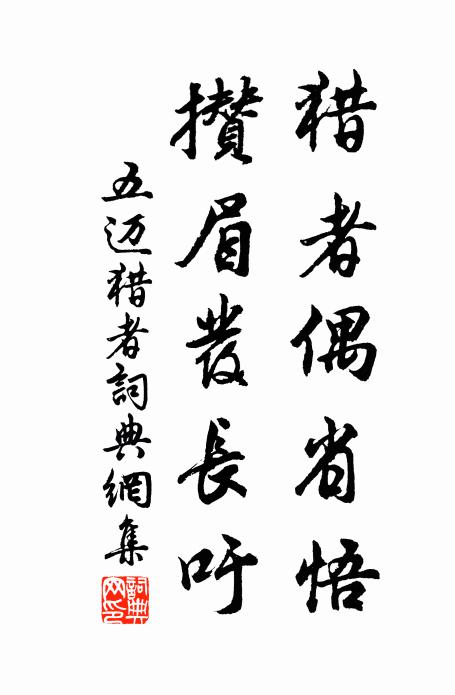 猎者偶省悟
攢眉發長吁
五迈猎者詞典網集
詞典网印